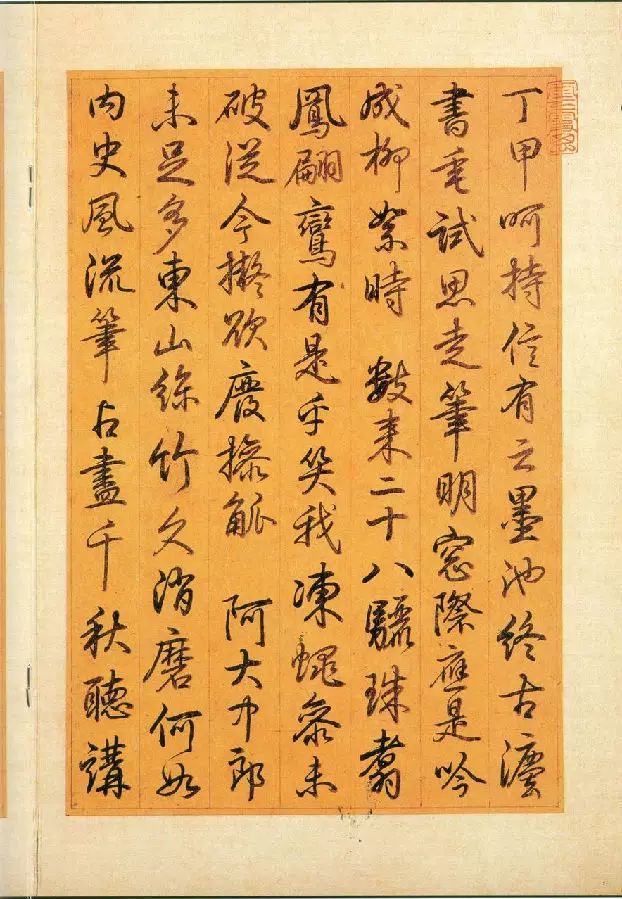 丁甲呵持信有之墨池終古
書試思走筆明窓際應是吟
成柳絮時 數來二十八驪珠翥
鳳翩鸞有是乎笑我凍蠅參未
破從今擬欲廢操觚 阿大中郎
未足多東山絲竹久消磨何如
內史風流筆占盡千秋聽講